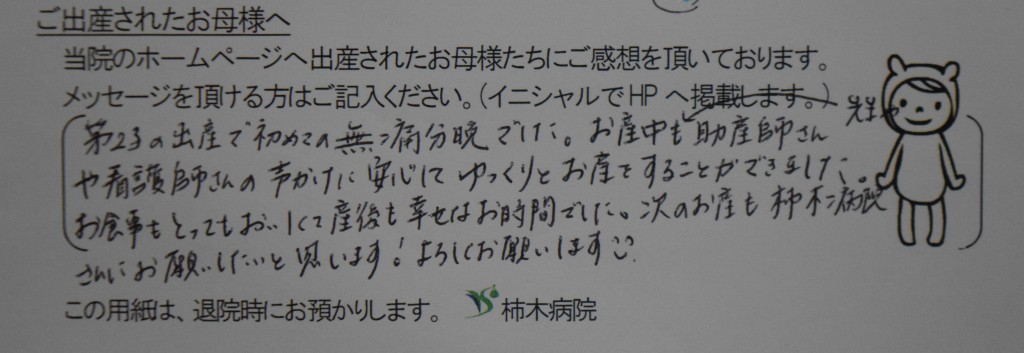 ご出産されたお母様へ
当院のホームページへ出産されたお母様たちにご感想を頂いております。
メッセージを頂ける方はご記入ください。（イニシャルでHPへ掲載します。）
第2子の出産で初めての無痛分娩でした。お産中も先生や助産師さん
や看護師さんの声かけに安心してゆっくりとお産をすることができました。
お食事もとってもおいしくて産後も幸せなお時間でした。次のお産も柿木病院
さんにお願いしたいと思います！よろしくお願いします
この用紙は、退院時にお預かりします。 柿木病院